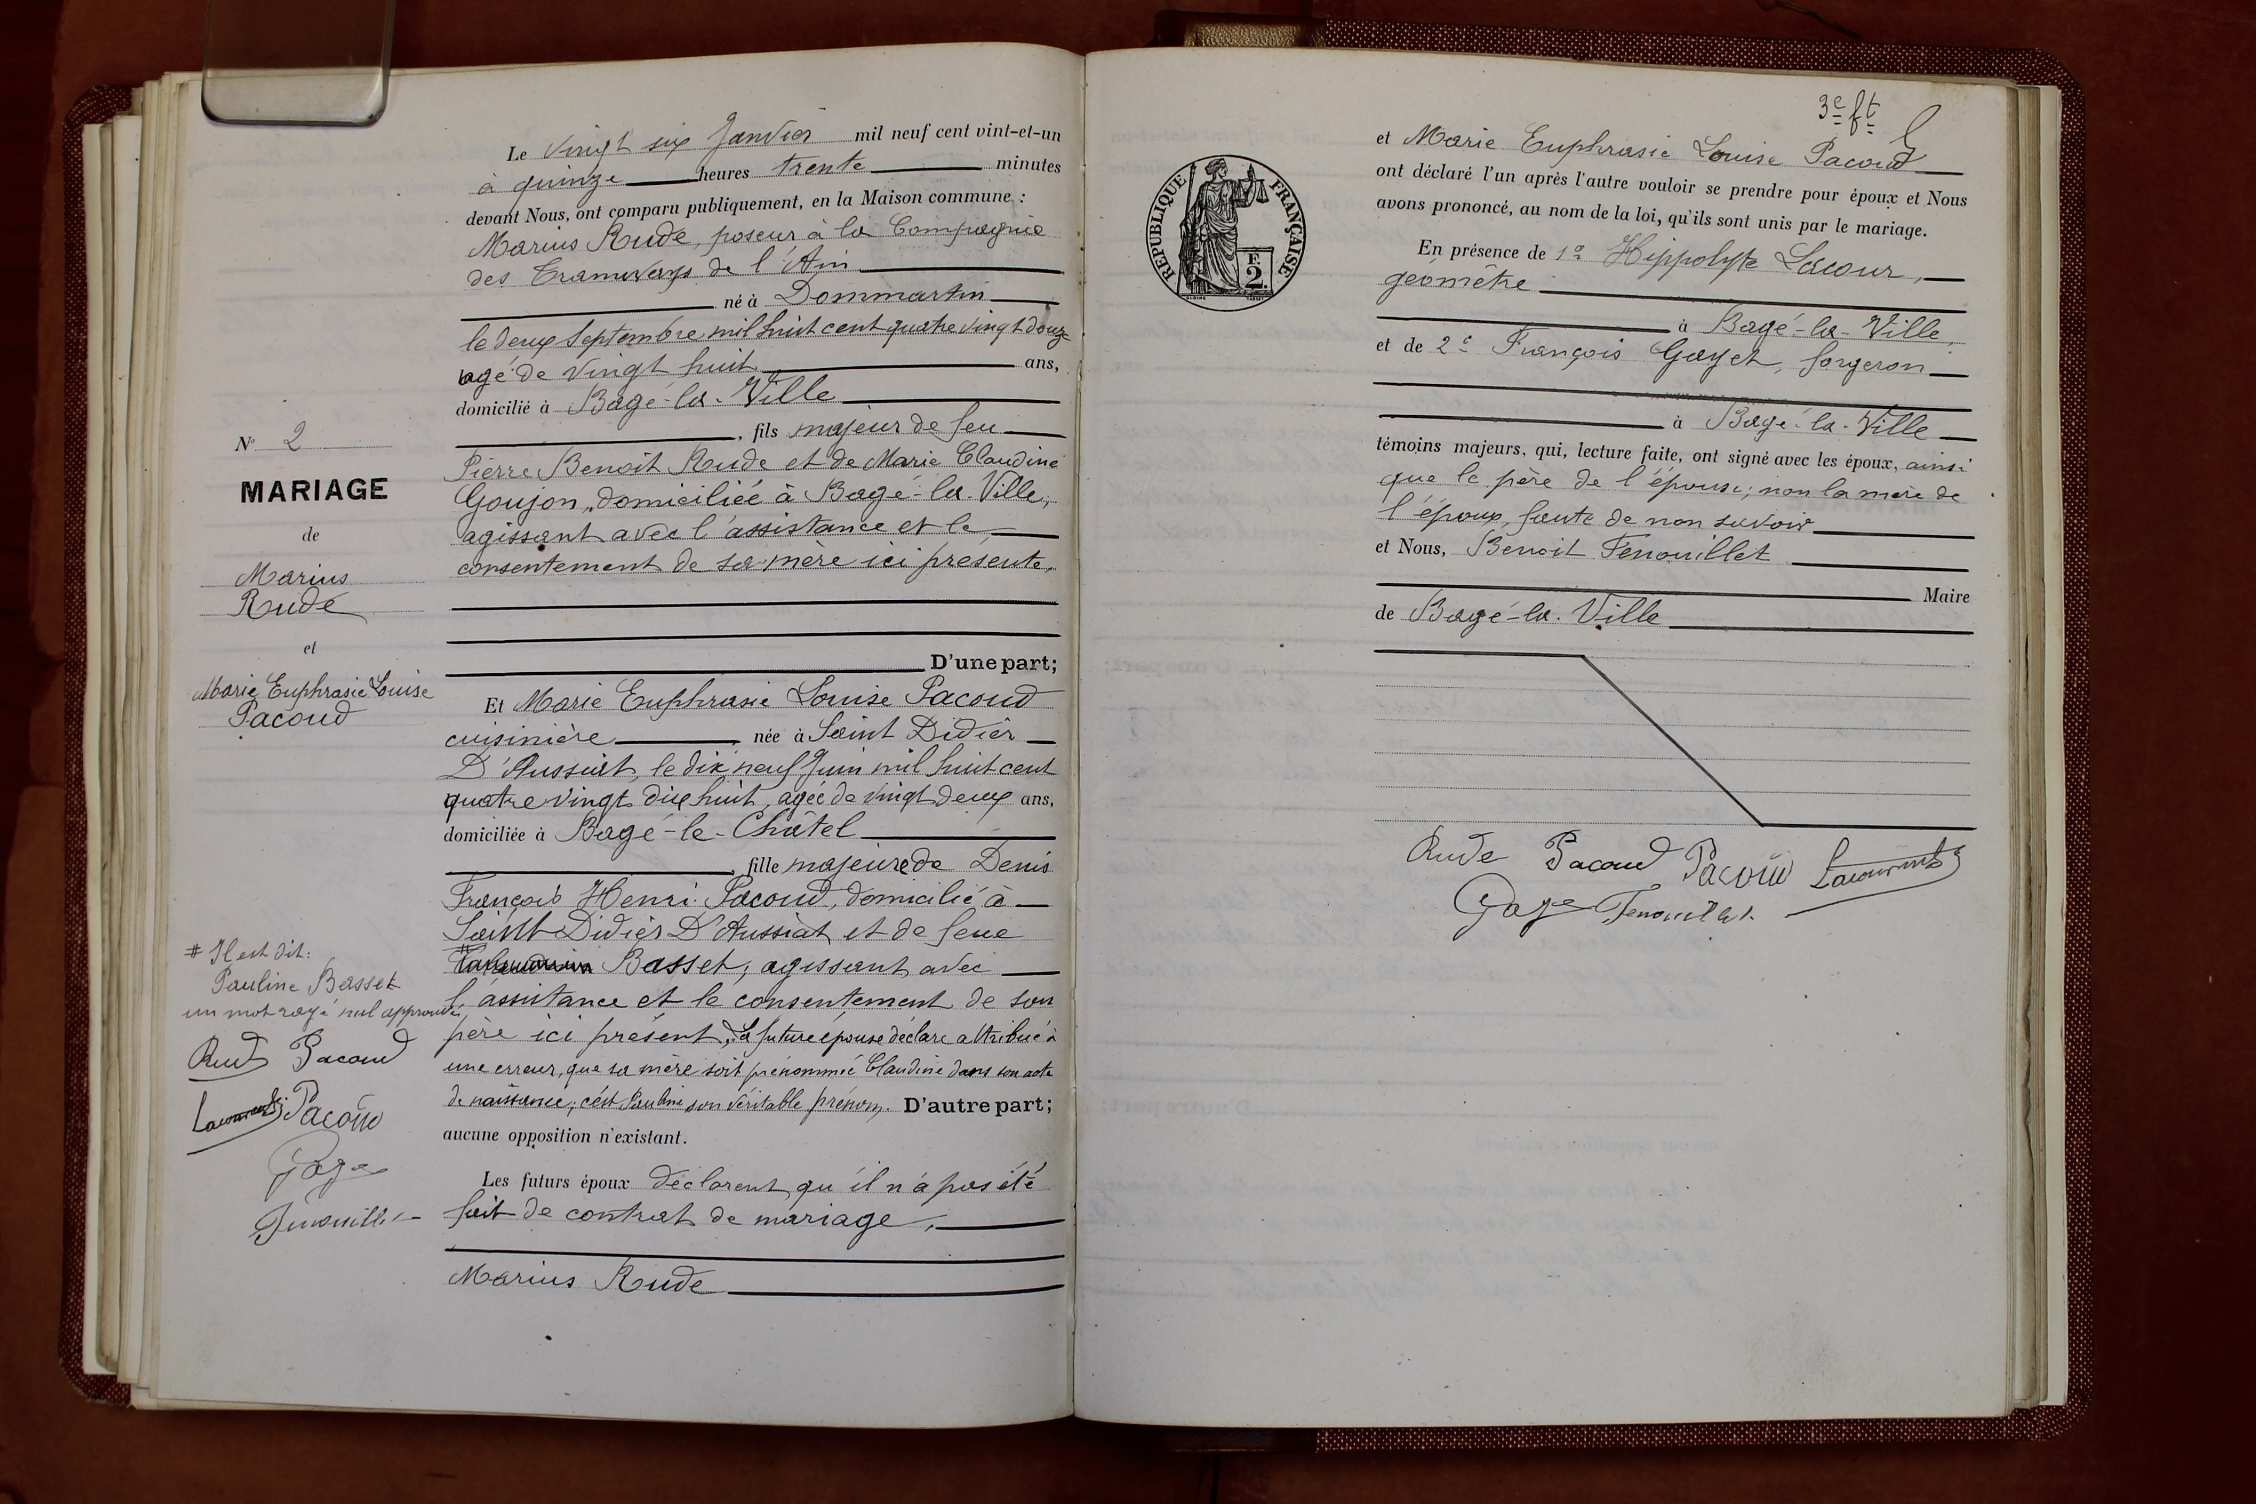 N° 2
MARIAGE
de
Marius
Rude
et
Marie Euphrasie Louise
Pacoud
# Il est dit:
Pauline Basset
un mot rayé nul approuvé
Rude Pacoud
Pacoud
Le vingt six Janvier mil neuf cent vint-et-un
à quinze heures trente minutes
devant Nous, ont comparu publiquement, en la Maison commune :
Marius Rude, poseur à la Compagnie
des Tramways de l'Ain
né à Dommartin
le deux Septembre mil huit cent quatre vingt douze
agé de vingt huit ans,
domicilié à Bagé-la-Ville
, fils majeur de feu
Pierre Benoît Rude et de Marie Claudine
Goujon, domiciliée à Bagé-la-Ville,
agissant avec l'assistance et le
consentement de sa mère ici présente.
D'une part;
Et Marie Euphrasie Louise Pacoud
cuisinière née à Saint Didier
D'Aussiat, le dix neuf Juin mil huit cent
quatre vingt dix huit, agée de vingt deux ans,
domiciliée à Bagé-le-Châtel
, fille majeure de Denis
François Henri Pacoud, domicilié à
Saint Didier D'Aussiat et de feue
# Basset, agissant avec
l'assistance et le consentement de son
père ici présent, La future épouse déclare attribué à
une erreur, que sa mère soit prénommée Claudine dans son acte
de naissance; c'est Pauline son véritable prénom. D'autre part;
aucune opposition n'existant.
Les futurs époux déclarent qu'il n'a pas été
fait de contrat de mariage.
Marius Rude
3e ft
REPUBLIQUE FRANÇAISE
F.
2.
et Marie Euphrasie Louise Pacoud
ont déclaré l'un après l'autre vouloir se prendre pour époux et Nous
avons prononcé, au nom de la loi, qu'ils sont unis par le mariage.
En présence de 1° Hippolyte Lacour,
géomètre
à Bagé-la-Ville,
et de 2° François Gayet, forgeron
à Bagé-la-Ville
témoins majeurs, qui, lecture faite, ont signé avec les époux, ainsi
que le père de l'épouse; non la mère de
l'époux, faute de non savoir
et Nous, Benoit Fenouillet
Maire
de Bagé-la-Ville
Rude Pacoud Pacoud
Fenouillet